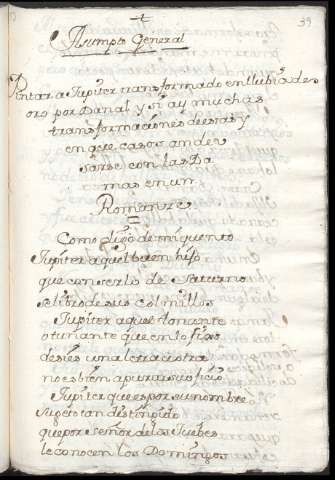 39
Asumpto General
Pintar a Jupiter transformado en llubia de
oro por Danae y si ay muchas
transformaciones de esas y
en que casos an de
usarse con las Da
mas en un
Romanze
Como digo de mi quento
Jupiter aquel buen hijo
que con serlo de Saturno
se libro de sus colmillos
Jupiter aquel tonante
o tunante que en lo fixo
desies una letra u otra
no es bien apurar su oficio
Jupiter que es por su nombre
sugeto tan distinguido
que por señor de los Juebes
le conocen los Domingos